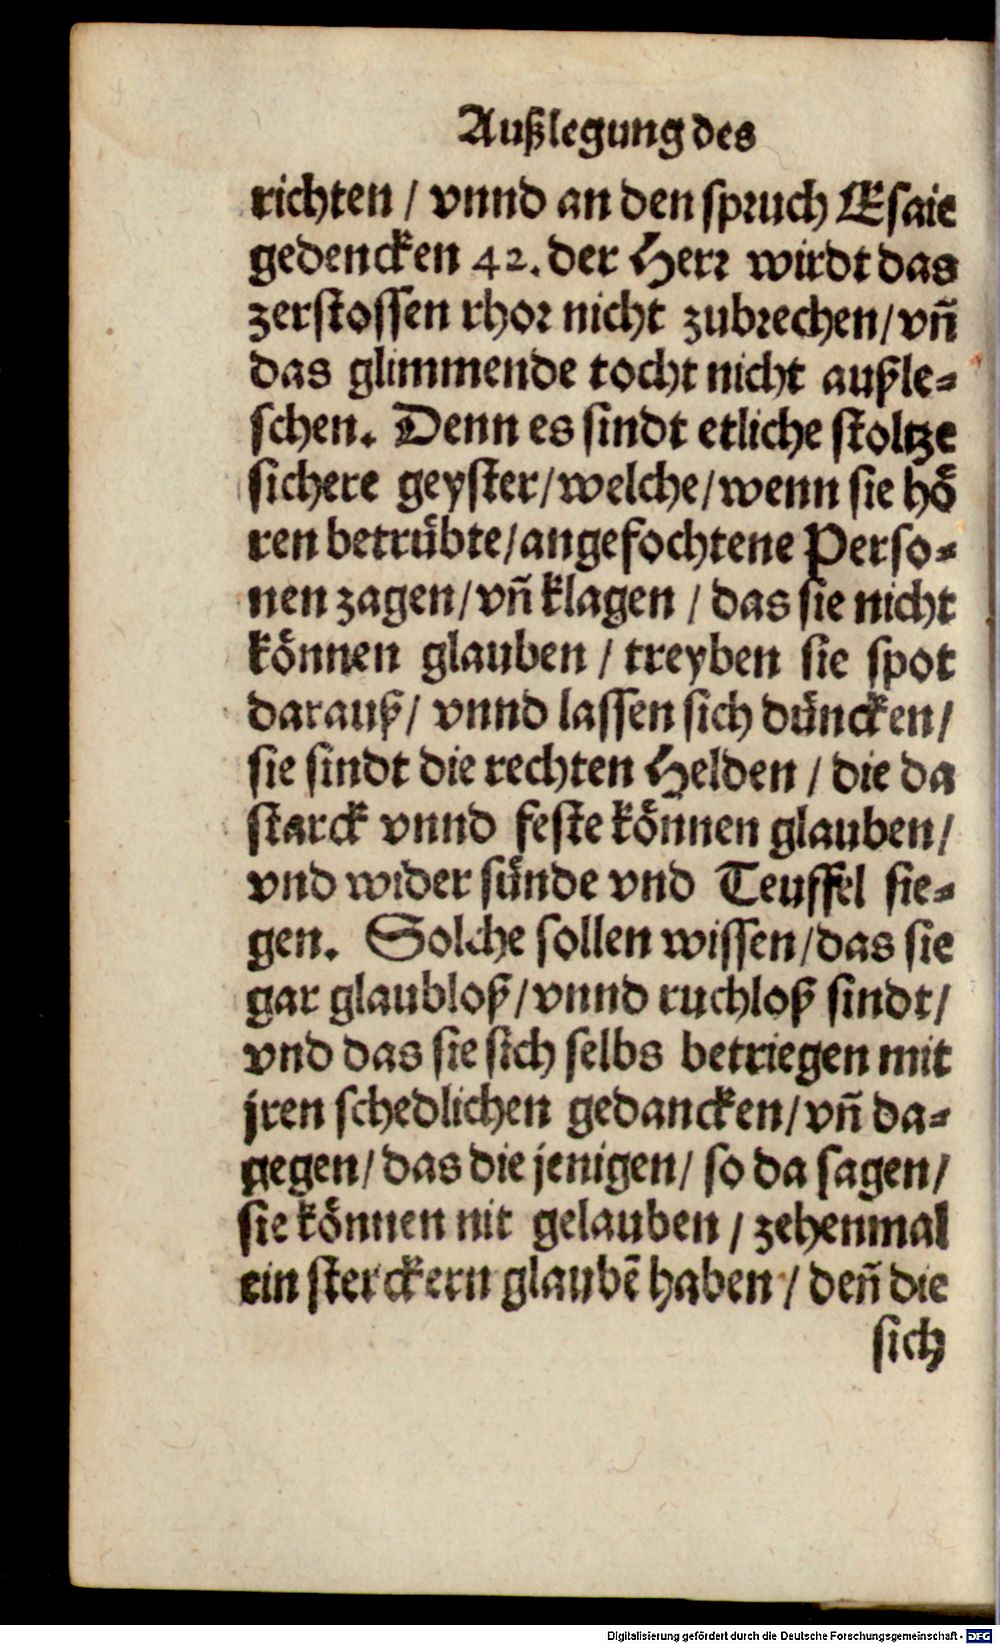 Außlegung des
richten / vnnd an den spruch Esaie
gedencken 42. der Herr wirdt das
zerstossen rhor nicht zubrechen/ vñ
das glimmende tocht nicht außle-
schen. Denn es sindt etliche stoltze
sichere geyster/ welche/ wenn sie hö
ren betrübte/ angefochtene Perso-
nen zagen/ vñ klagen / das sie nicht
können glauben / treyben sie spot
darauß/ vnnd lassen sich düncken/
sie sindt die rechten Helden / die da
starck vnnd feste können glauben/
vnd wider sünde vnd Teuffel sie-
gen. Solche sollen wissen/ das sie
gar glaubloß/ vnnd ruchloß sindt/
vnd das sie sich selbs betriegen mit
jren schedlichen gedancken/ vñ da-
gegen/ das die jenigen/ so da sagen/
sie können nit gelauben / zehenmal
ein sterckern glaubẽ haben / deñ die
sich
Digitalisierung gefördert durch die Deutsche Forschungsgemeinschaft - DFG